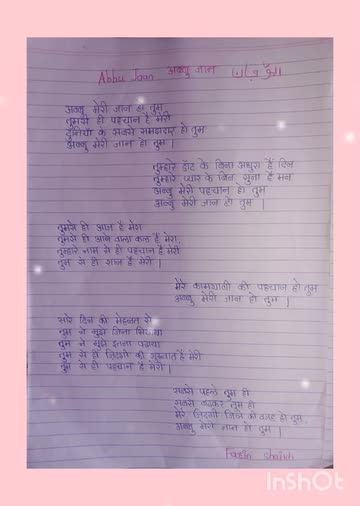 Abbu Jaan अब्बु जान
अब्बु मेरी जान हो तुम
तुमसे ही पहचान है मेरी
दुनिया के सबसे समझदार हो तुम
अब्बु मेरी जान हो तुम |
तुम्हारे डाँट के बिना अधुरा है दिन
तुम्हारे प्यार के बिन सुना है मन
अब्बु मेरी पहचान हो तुम
अब्बु मेरी जान हो तुम |
तुमसे ही आज है मेरा
तुमसे ही आने वाला कल है मेरा
तुम्हारे नाम से ही पहचान है मेरी
तुम से ही शान है मेरी |
मेरे कामयाबी की पहचान हो तुम
अब्बु मेरी जान हो तुम |
सारे दिन की मेहनत से
तुम ने मुझे जिना सिखाया
तुम ने मुझे इतना पढ़ाया
तुम से ही जिंदगी की शुरुवात है मेरी
तुम से ही पहचान है मेरी |
सबसे पहले तुम हो
सबसे बढ़कर तुम हो
मेरे जिंदगी जिने की वजह हो तुम
अब्बु मेरी जान हो तुम |
Shaikh
InShOt